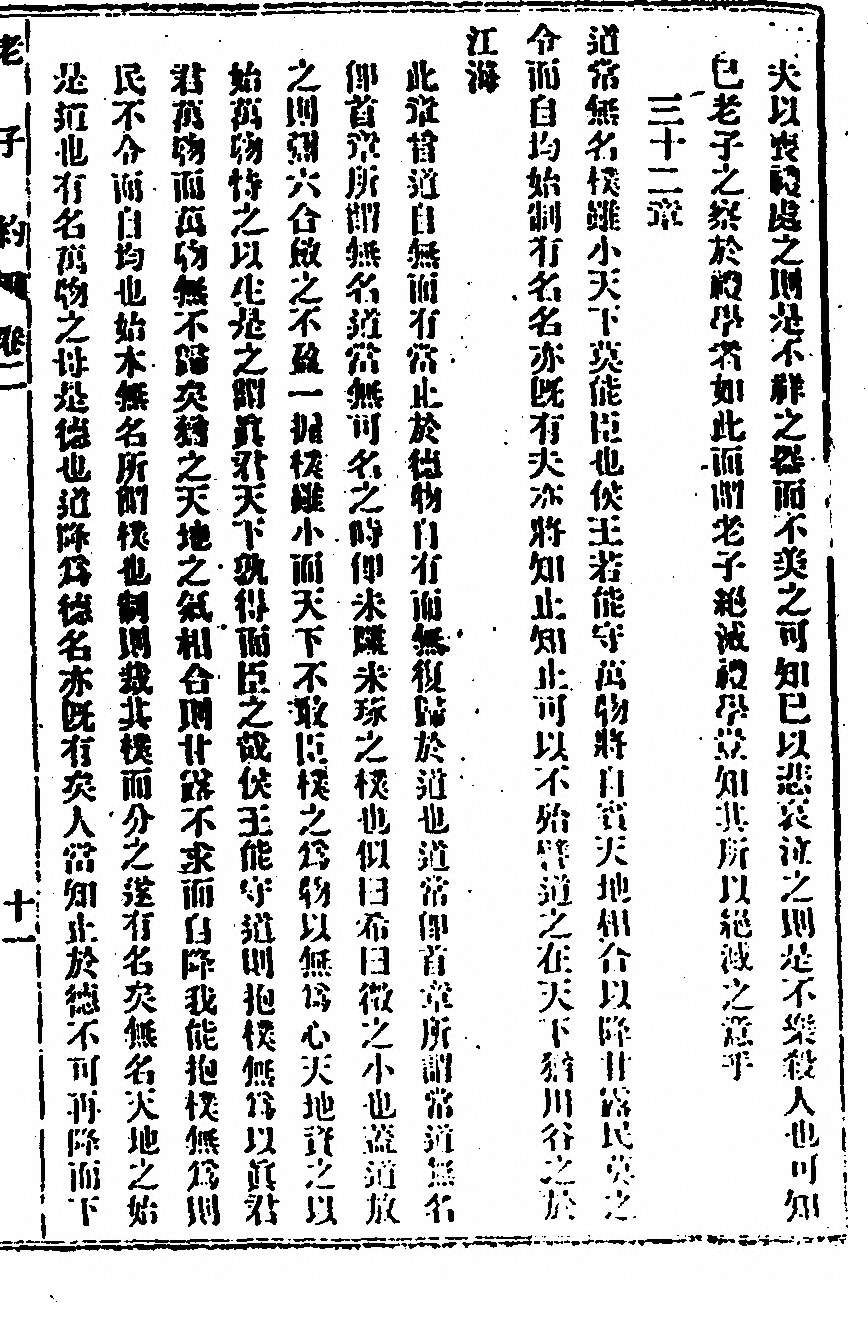 夫以喪禮處之則是不祥之器而不美之可知已以悲哀泣之則是不樂殺人也可知
已老子之察於禮學者如此而謂老子絕滅禮學豈知其所以絕滅之意乎
三十二章
道常無名樸雖小天下莫能臣也侯王若能守萬物將自賓天地相合以降甘露民莫之
令而自均始制有名名亦既有夫亦將知止知止可以不殆譬道之在天下猶川谷之於
江海
此章嘗道自無而有當止於德物自有而無復歸於道也道常卽首章所謂常道無名
卽首章所謂無名道當無可名之時卽未雕未琢之樸也似曰希曰微之小也蓋道放
之則彌六合斂之不盈一握樸雖小而天下不敢臣樸之爲物以無爲心天地資之以
始萬物恃之以生是之謂眞君天下孰得而臣之哉侯王能守道則抱樸無爲以眞君
君萬物而萬物無不歸矣猶之天地之氣相合則甘露不求而自降我能抱樸無爲則
民不令而自均也始本無名所謂樸也制則裁其樸而分之遂有名矣無名天地之始
是道也有名萬物之母是德也道降爲德名亦既有矣人當知止於德不可再降而下
老子約 卷二
十一